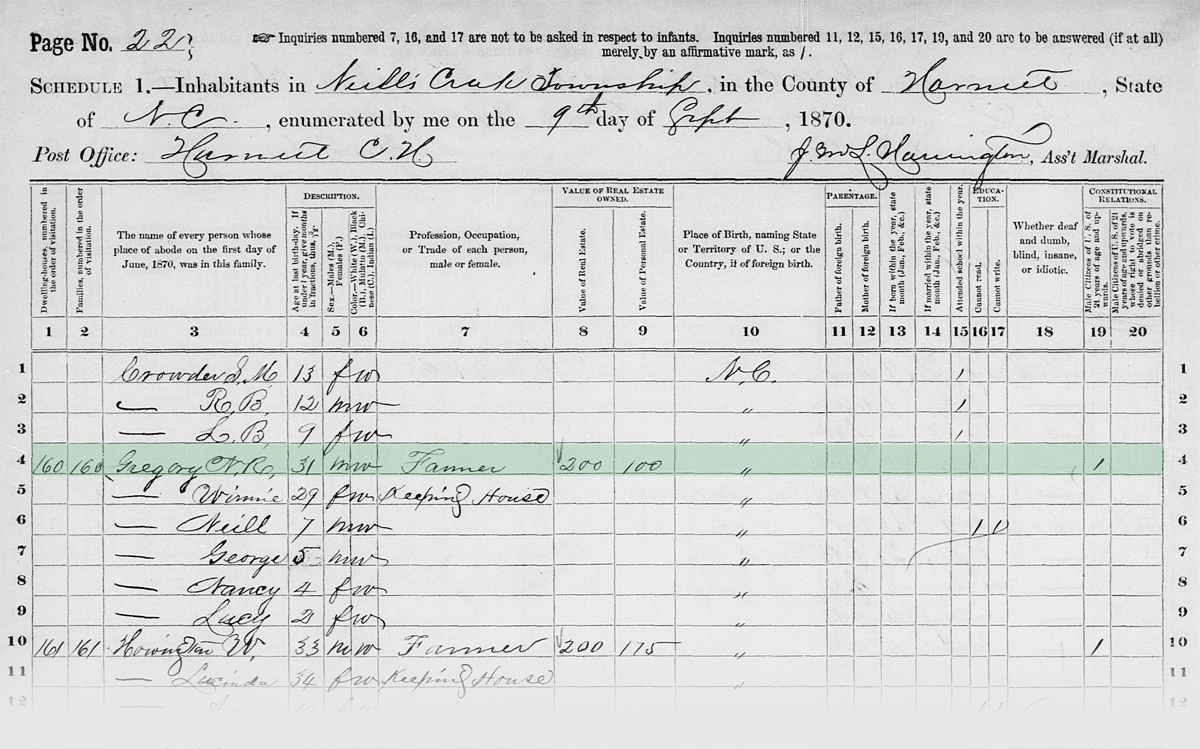 Page No. 22
☞ Inquiries numbered 7, 16, and 17 are not to be asked in respect to infants. Inquiries numbered 11, 12, 15, 16, 17, 19, and 20 are to be answered (if at all)
merely by an affirmative mark, as /.
SCHEDULE 1.—Inhabitants in Neills Creek Township, in the County of Harnett, State
of N.C., enumerated by me on the 9th day of Sept, 1870.
Post Office: Harnett C.H. J. McL. Harrington, Ass't Marshal.
Dwelling-houses, numbered in the order of visitation.
Families, numbered in the order of visitation.
The name of every person whose place of abode on the first day of June, 1870, was in this family.
DESCRIPTION.
Age at last birth-day. If under 1 year, give months in fractions, thus, 3/12.
Sex.—Males (M.), Females (F.)
Color.—White (W.), Black (B.), Mulatto (M.), Chinese (C.), Indian (I.)
Profession, Occupation, or Trade of each person, male or female.
VALUE OF REAL ESTATE OWNED.
Value of Real Estate.
Value of Personal Estate.
Place of Birth, naming State or Territory of U. S.; or the Country, if of foreign birth.
PARENTAGE.
Father of foreign birth.
Mother of foreign birth.
If born within the year, state month (Jan., Feb., &c.)
If married within the year, state month (Jan., Feb., &c.)
Attended school within the year.
EDUCATION.
Cannot read.
Cannot write.
Whether deaf and dumb, blind, insane, or idiotic.
CONSTITUTIONAL RELATIONS.
Male Citizens of U. S. of 21 years of age and upwards.
Male Citizens of U. S. of 21 years of age and upwards, whose right to vote is denied or abridged on other grounds than rebellion or other crime.
1 2 3 4 5 6 7 8 9 10 11 12 13 14 15 16 17 18 19 20
1 Crowder S. M. 13 f w N.C. / 1
2 — R. B. 12 m w " / 2
3 — L. B. 9 f w " / 3
4 160 160 Gregory N. R. 31 m w Farmer 200 100 " 1 4
5 — Winnie 29 f w Keeping House " 5
6 — Neill 7 m w " 1 1 6
7 — George 5 m w " 7
8 — Nancy 4 f w " 8
9 — Lucy 2 f w " 9
10 161 161 Howington W. 33 m w Farmer 200 175 " 1 10
11 — Lucinda 34 f w Keeping House " 11
12 12